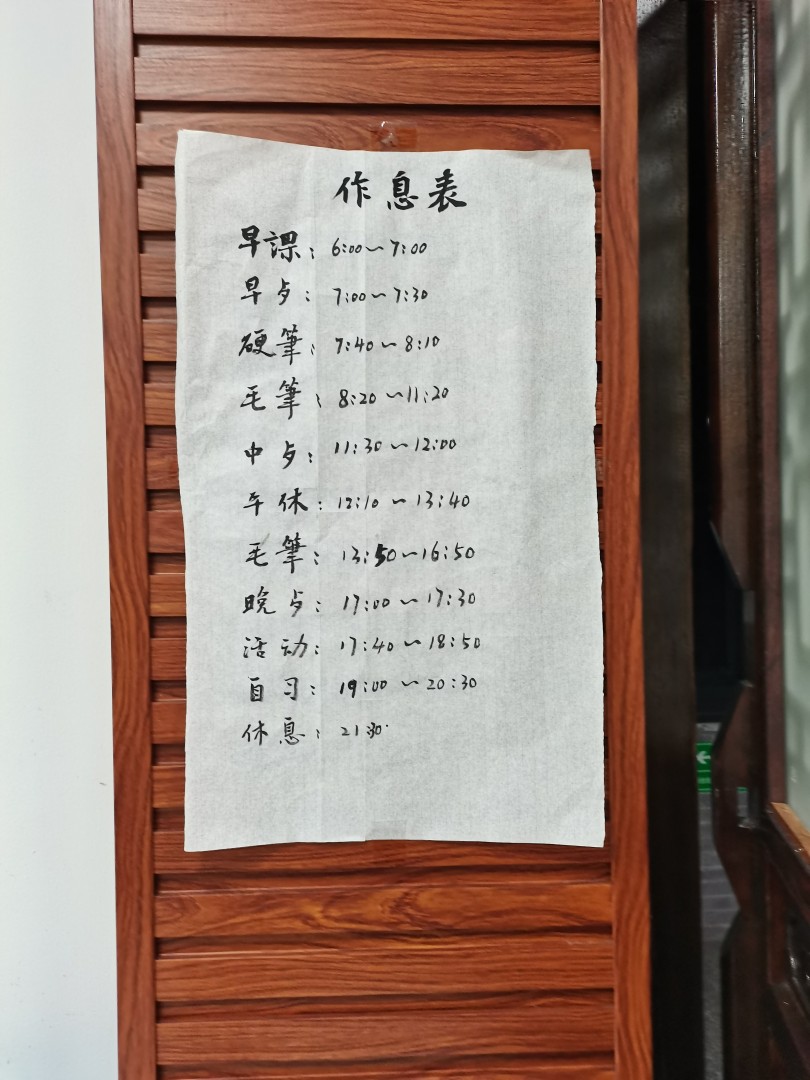 作息表
早課：6:00～7:00
早歺：7:00～7:30
硬筆：7:40～8:10
毛筆：8:20～11:20
中歺：11:30～12:00
午休：12:10～13:40
毛筆：13:50～16:50
晚歺：17:00～17:30
活动：17:40～18:50
自习：19:00～20:30
休息：21:30